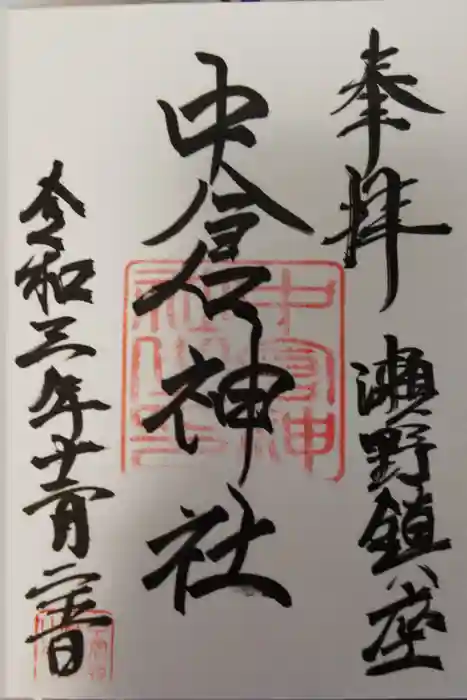 奉拝 瀬野鎮座
中倉神社
中倉神社之印
令和三年十二月